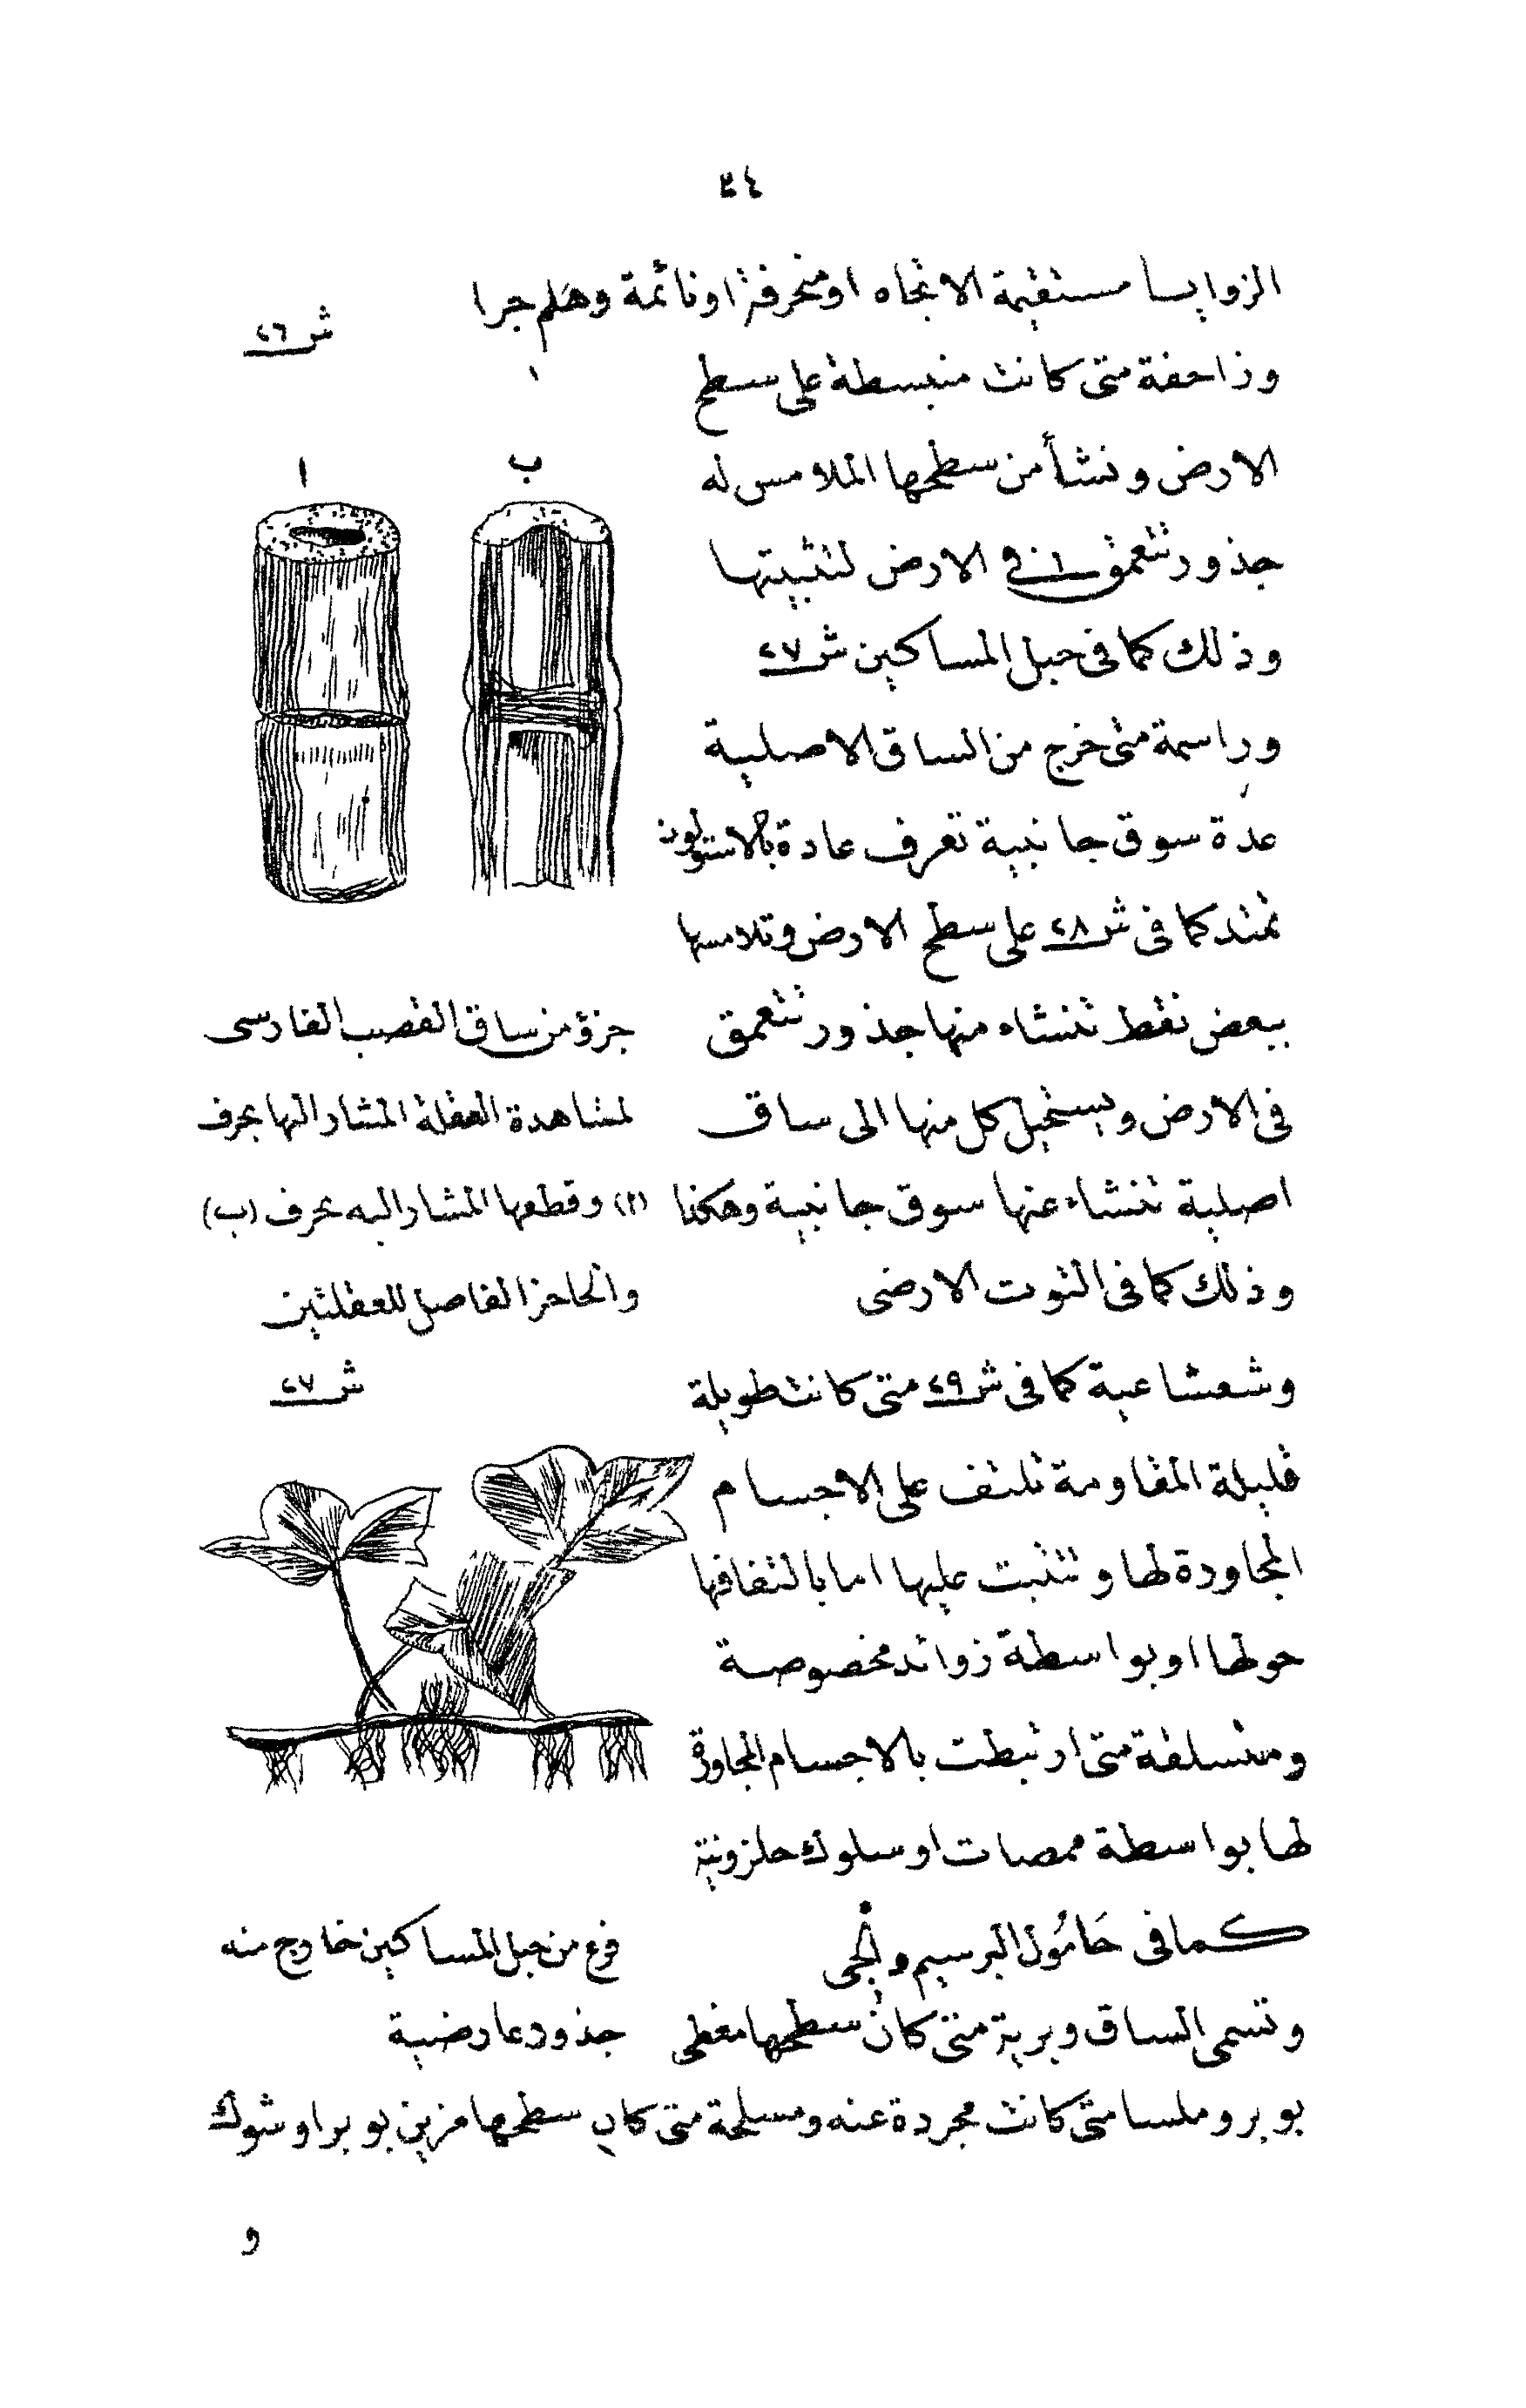 ٣٤
الزوايا مستقيمة الاتجاه او منحرفة او نائمة وهلم جرا
وزاحفة متى كانت منبسطة على سطح
الارض وتنشأ من سطحها الملامس له
جذور تتعمق في الارض لتثبيتها
وذلك كما فى حبل المساكين ش ٢٧
وراسمة متى خرج من الساق الاصلية
عدة سوق جانبية تعرف عادة بالاستولون
تمتد كما فى ش ٢٨ على سطح الارض وتلامسها
ببعض نقط تنشاء منها جذور تتعمق
فى الارض ويستحيل كل منها الى ساق
اصلية تنشاء عنها سوق جانبية وهكذا
وذلك كما فى التوت الارضى
وشعشاعية كما فى ش ٢٩ متى كانت طويلة
قليلة المقاومة تلتف على الاجسام
المجاورة لها وتتثبت عليها اما بالتفافها
حولها او بواسطة زوائد مخصوصة
ومتسلقة متى ارتبطت بالاجسام المجاورة
لها بواسطة ممصات او سلوك حلزونية
كما فى حَامُول البرسيم و
وتسمى الساق وبرية متى كان سطحها مغطى
بوبر وملسا متى كانت مجردة عنه ومسلحة متى كان سطحها مزين بوبر او شوك
و
ش ٢٦
ا
ب
جزؤ من ساق القصب الفارسى
لمشاهدة العقلة المشار اليها بحرف
(ا) وقطعها المشار اليه بحرف (ب)
والحاجز الفاصل للعقلتين
ش ٢٧
فرع من حبل المساكين خارج منه
جذور عارضية